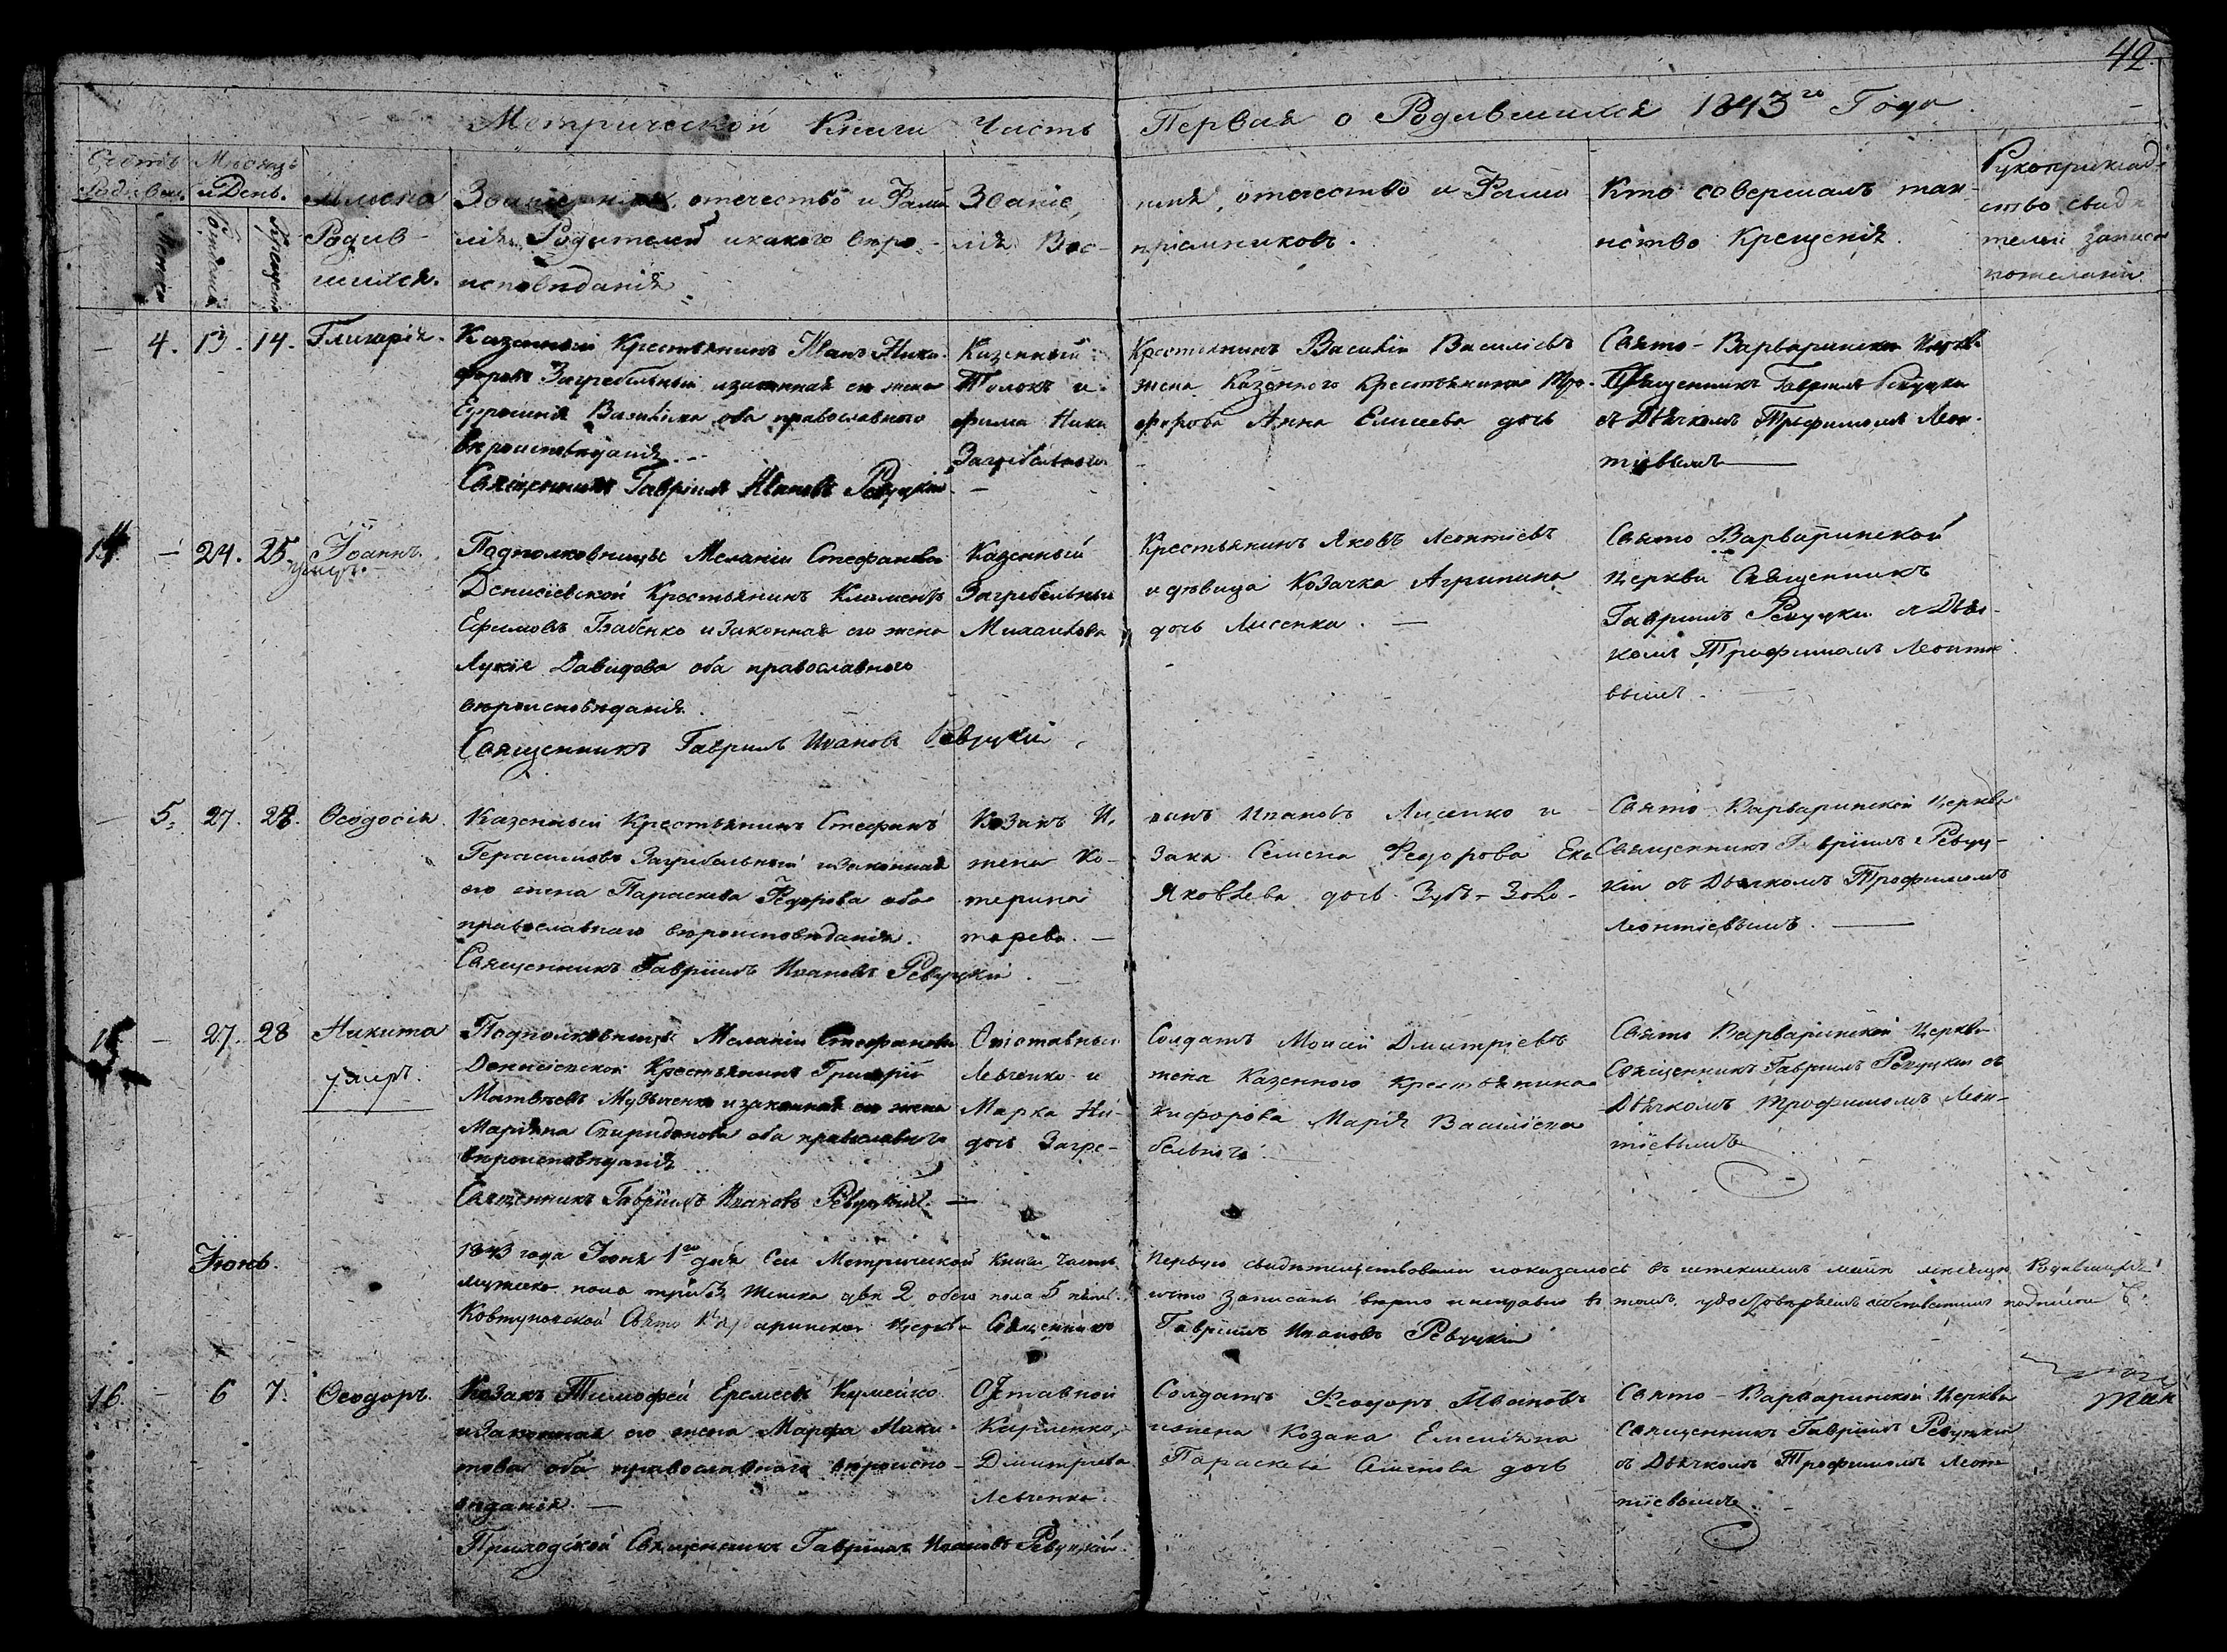 42.
Метрической Книги Часть Первая о Родившихся 1843го Года
Счетъ Родивш. Месяцъ и День. Имена Родившихся. Званіе, имя, отечество и Фамилія Родителей и какого вероисповеданія Званіе, имя, отечество и Фамилія Воспріемниковъ. Кто совершалъ таинство Крещенія. Рукоприкладство свидетелей записи по желанію
Рожденія Крещенія
4. 13. 14. Гликерія.
Казенный Крестьянинъ Иванъ Ники-
форовъ Загребельный и законная его жена
Ефросинія Василіева оба православнаго
вероисповеданія
Священникъ Гавріилъ Ивановъ Ревуцкій
Казенный Крестьянинъ Василій Василіевъ
Толокъ и жена Казенного Крестьянина Тро-
фима Никифорова Анна Елисеева дочь
Загребельного
Свято-Варваринской Церкви
Священникъ Гавріилъ Ревуцкій
съ Дьячкомъ Трофимомъ Леон-
тіевымъ
14 — 24. 25. Іоаннъ.
умеръ.
Подполковницы Меланіи Стефановой
Денисіевской Крестьянинъ Климентъ
Ефимовъ Бабенко и Законная его жена
Лукія Давидова оба православнаго
вероисповеданія.
Священникъ Гавріилъ Ивановъ Ревуцкій
Казенный Крестьянинъ Яковъ Леонтіевъ
Загребельный и девица Козачка Агрипина
Михаилова дочь Лисенка.
Свято Варваринской
Церкви Священникъ
Гавріилъ Ревуцкій съ Дья-
комъ Трофимомъ Леонтіе
вымъ.
— 5. 27. 28. Ѳеодосія.
Казенный Крестьянинъ Стефанъ
Герасимовъ Загребельный и законная
его жена Параскева Федорова оба
православнаго вероисповеданія.
Священникъ Гавріилъ Ивановъ Ревуцкій.
Козакъ Иванъ Ивановъ Лисенко и
жена Козака Семена Федорова Ека
терина Яковлева дочь Зубъ-Золо-
тарева.
Свято Варваринской Церкви
Священникъ Гавріилъ Ревуц-
кій съ Дьячкомъ Трофимомъ
Леонтіевымъ.
15 — 27. 28 Никита
умеръ.
Подполковницы Меланіи Стефановой
Денисіевской Крестьянинъ Григорій
Матвеевъ и законная его жена
Маріяна Спиридонова оба православнаго
вероисповеданія
Священникъ Гавріилъ Ивановъ Ревуцкій.
Отставный Солдатъ Моисей Дмитріевъ
Левченко и жена Казенного Крестьянина
Марка Никифорова Марія Василіева
дочь Загребельного
Свято Варваринской Церкви
Священникъ Гавріилъ Ревуцкій съ
Дьячкомъ Трофимомъ Леон-
тіевымъ
Іюнь.
1843 года Іюня 1го дня Сей Метрической Книги Часть Первую свидетельствовали и оказалось въ истекшемъ месяце Родившихся
мужеска пола три 3, женска две 2 обоего пола 5 что записаны верно и исправно въ томъ удостоверяемъ подписомъ
Ковтуновской Свято Варваринской Церкви Священникъ Гавріилъ Ивановъ Ревуцкій
16. — 6 7. Ѳеодоръ.
Козакъ Тимофей Еремеевъ Кумейко
и Законная его жена Марфа Ники-
това оба православнаго вероиспо-
веданія.
Приходской Священникъ Гавріилъ Ивановъ Ревуцкій.
Отставной Солдатъ Феодоръ Ивановъ
Карпенко, и жена Козака Емеліяна
Дмитріева Параскева Семенова дочь
Левченка.
Свято-Варваринской Церкви
Священникъ Гавріилъ Ревуцкій
съ Дьячкомъ Трофимомъ Леон
тіевымъ